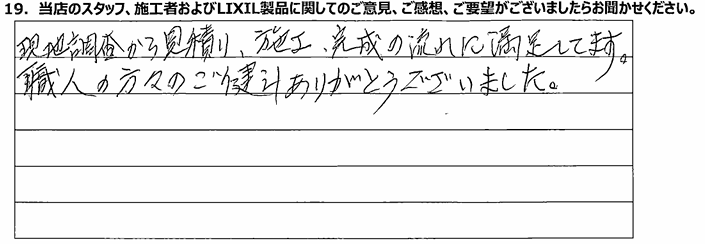 19. 当店のスタッフ、施工者およびLIXIL製品に関してのご意見、ご感想、ご要望がございましたらお聞かせください。
現地調査から見積り、施工、完成の流れに満足してます。
職人の方々のご健斗ありがとうございました。